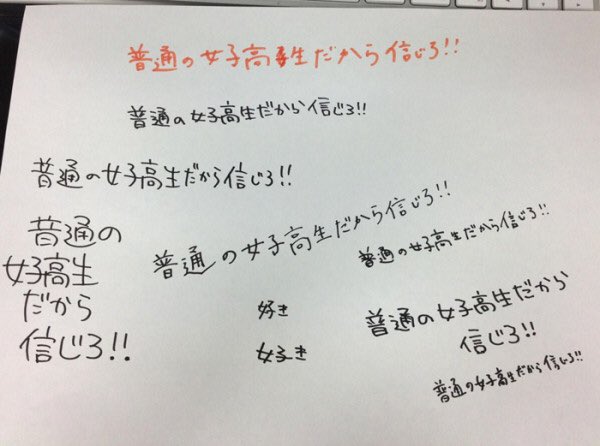 普通の女子高生だから信じろ!!
普通の女子高生だから信じろ!!
普通の女子高生だから信じろ!!
普通の女子高生だから信じろ!!
普通の
女子高生
だから
信じろ!!
普通の女子高生だから信じろ!!
好き
女子き
普通の女子高生だから
信じろ!!
普通の女子高生だから信じろ!!